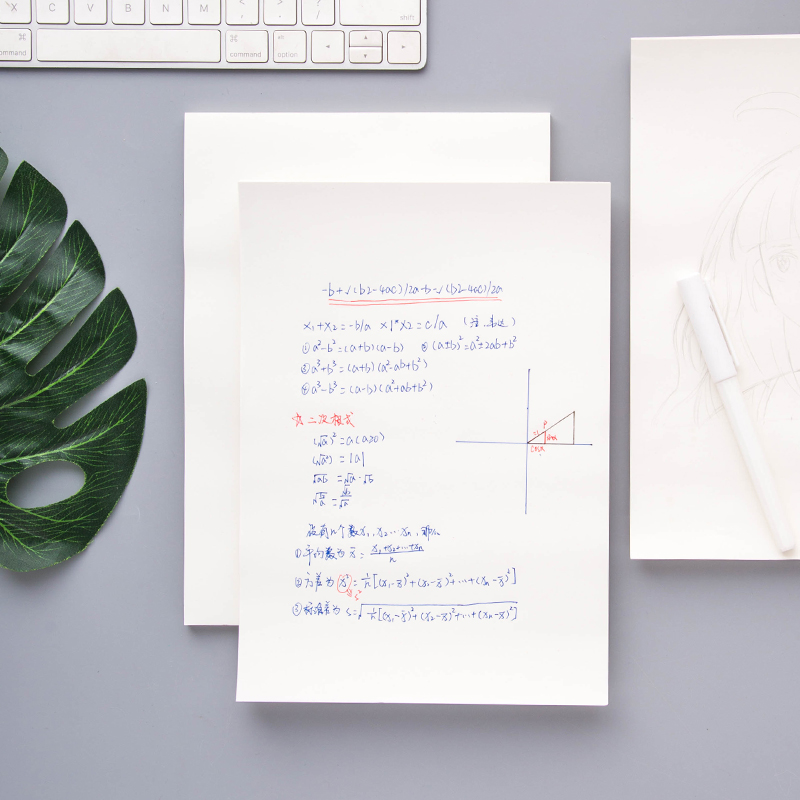 X C V B N M < > ? /
shift
command ⌘ command alt option
-b+√(b2-4ac)/2a -b-√(b2-4ac)/2a
x₁+x₂=-b/a x1*x2=c/a (注:韦达)
①a²-b²=(a+b)(a-b) ②(a±b)²=a²±2ab+b²
③a³+b³=(a+b)(a²-ab+b²)
④a³-b³=(a-b)(a²+ab+b²)
二次根式
(√a)²=a(a≥0)
(√a²)=|a|
√ab=√a·√b
P
设有n个数x₁,x₂…xₙ,那么
①平均数为x̄=(x₁+x₂+…+xₙ)/n
②方差为s²=1/n[(x₁-x̄)²+(x₂-x̄)²+…+(xₙ-x̄)²]
③标准差为s=√1/n[(x₁-x̄)²+(x₂-x̄)²+…+(xₙ-x̄)²]